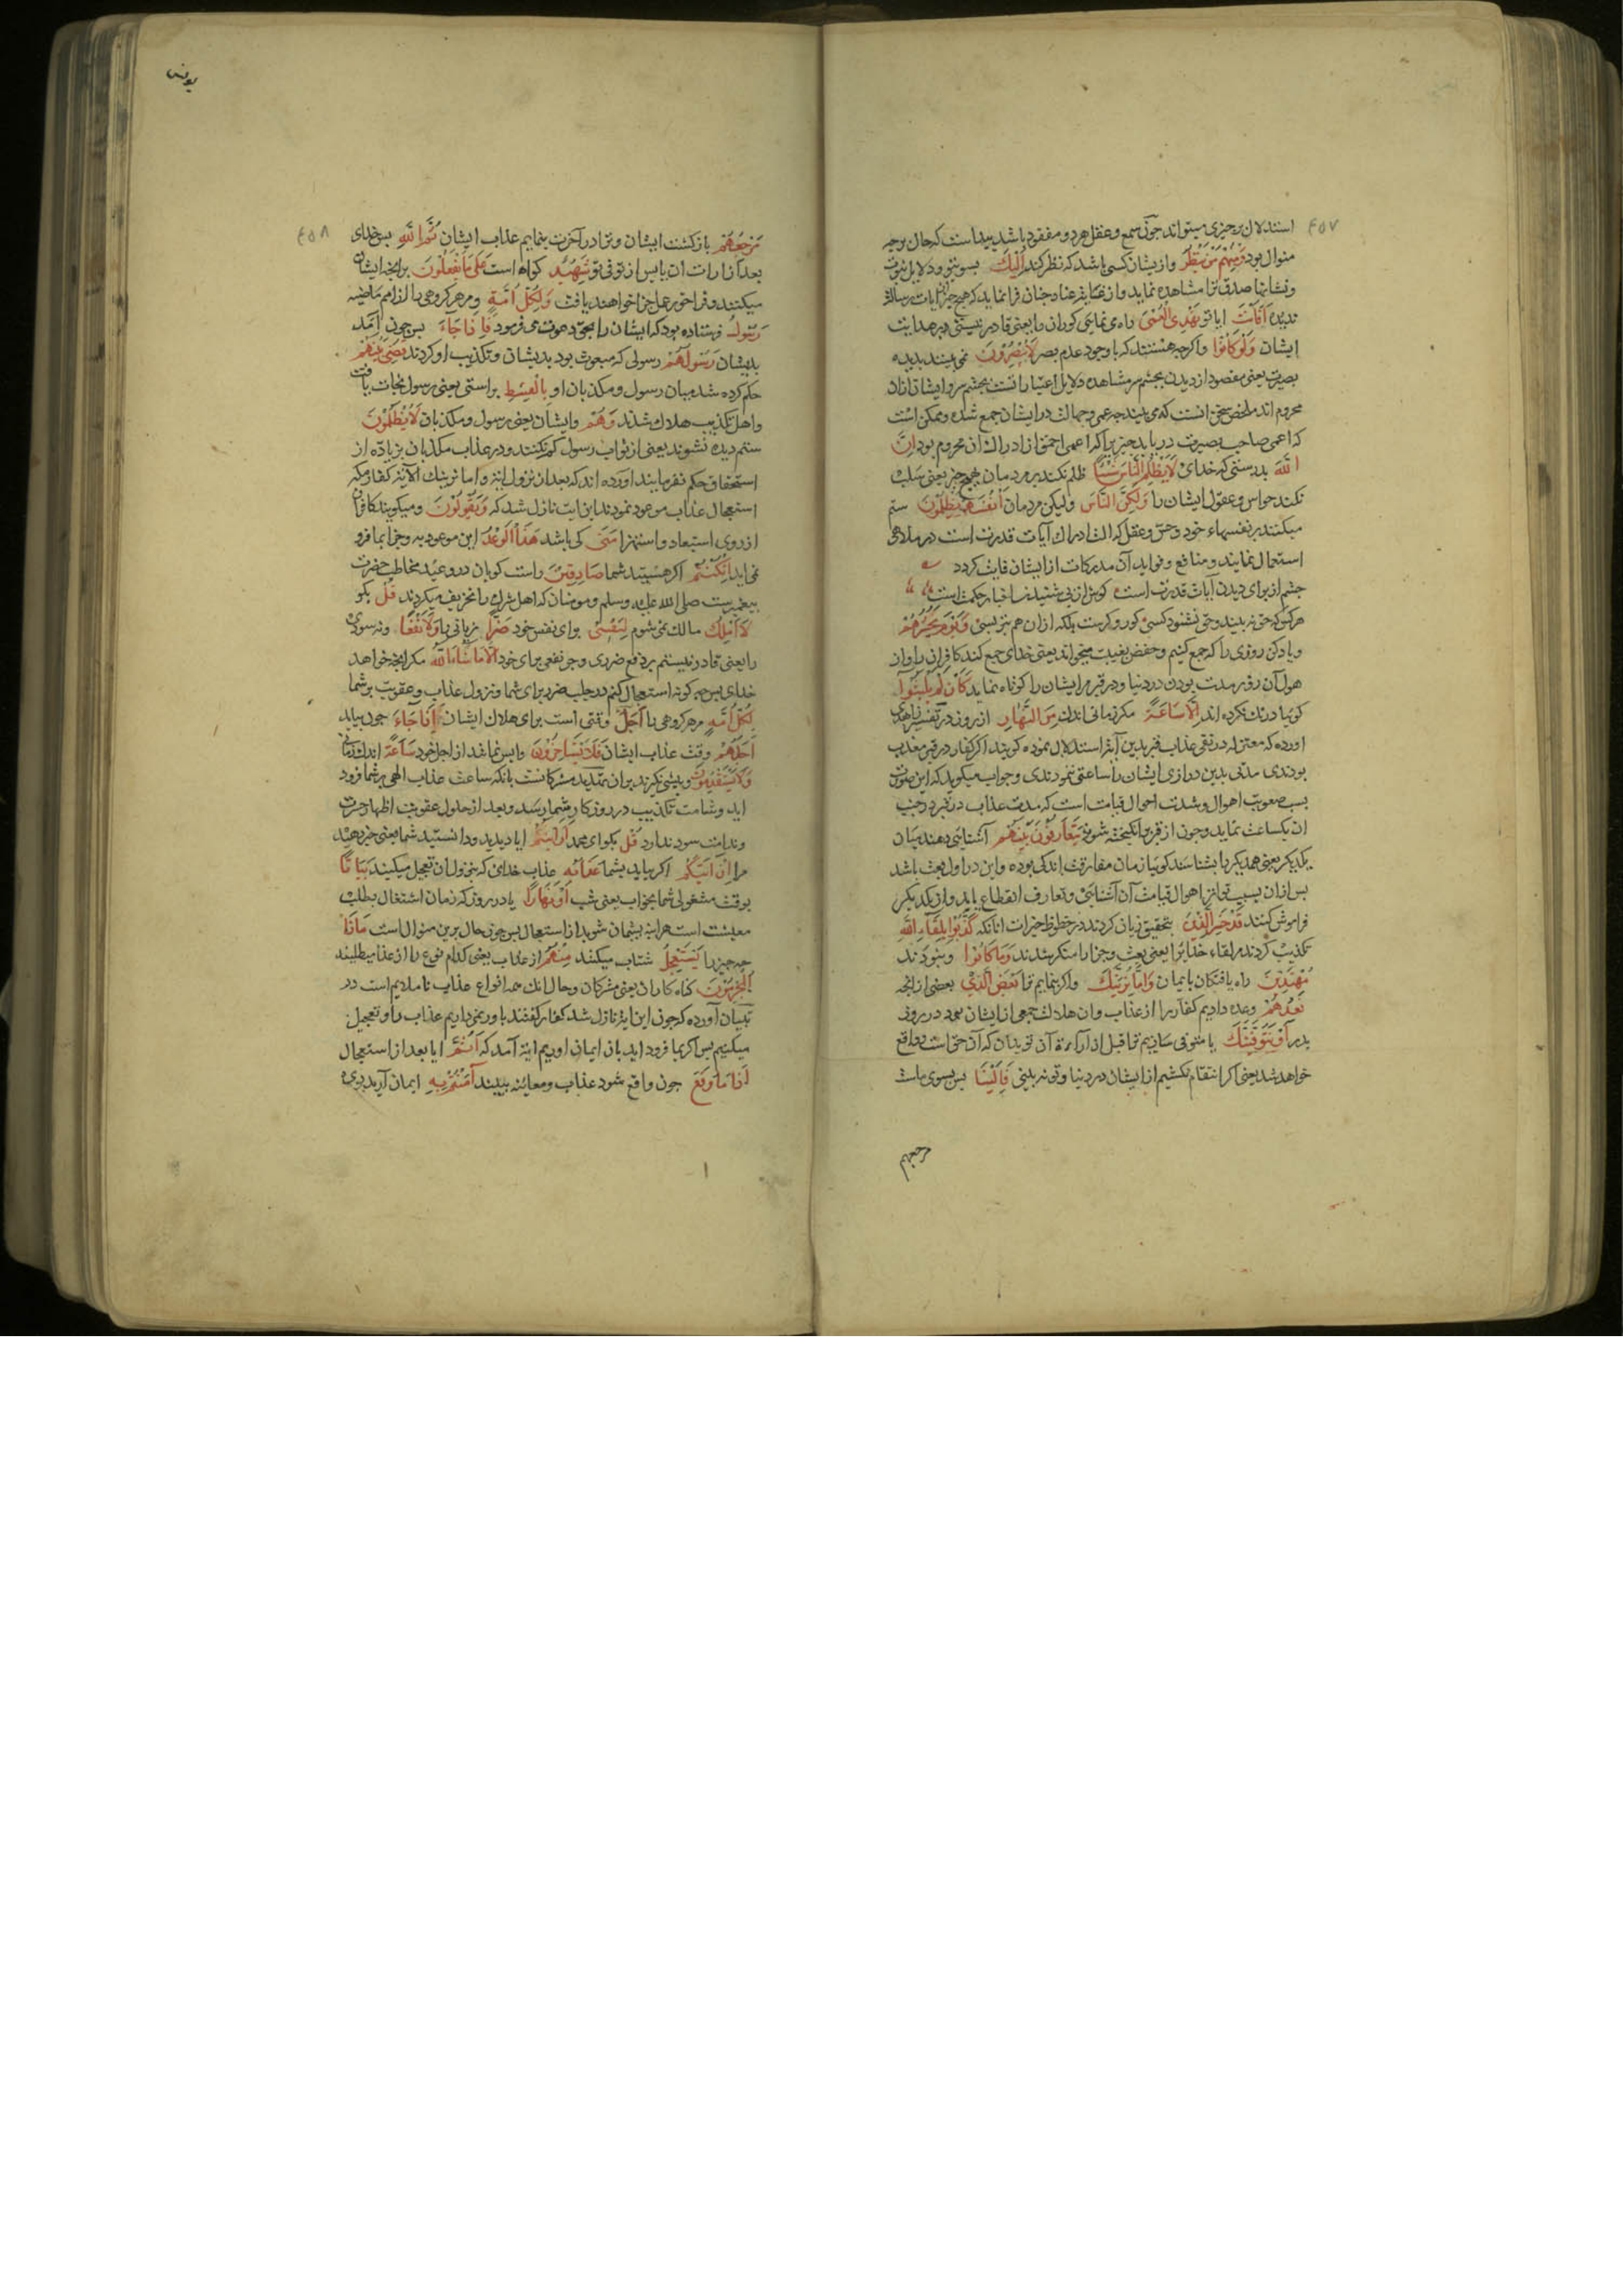 ٤٥٧
استدلال بر چیزی میتواند جون سمع و عقل هر دو مفقود باشد پیداست که حال برجه
منوال بود وَمِنْهُمْ مَنْ يَنْظُرُ وازیشان کسی باشد که نظر کند اِلَيْكَ بسوی تو و دلایل نبوت
و نشانهٔ صدق ترا مشاهده نماید و از غایت عناد جنان فرا نماید که هیچ جیز از آیات رسالت
ندیده اَفَأَنْتَ ایا تو تَهْدِى الْعُمْىَ راه می نمایی کوران را یعنی قادر نیستی بر هدایت
ایشان وَلَوْ كَانُوا و اکرجه هستند که با وجود عدم بصر لَا يُبْصِرُونَ نمی بینند بدیده
بصیرت یعنی مقصود از دیدن بجشم سر مشاهده دلایل اعتبار است بجشم سر و ایشان ازان
محروم اند ملخص سخن انست که می بینند جه عمی و جهالت در ایشان جمع شده و ممکن است
که اعمی صاحب بصیرت دریابد جیزیرا که اعمی احمق از ادراك ان محروم بود اِنَّ
اللّٰهَ بدرستی که خدای لَا يَظْلِمُ النَّاسَ شَيْئًا ظلم نکند بر مردمان بهیج جیز یعنی سلب
نکند حواس و عقول ایشان را وَلٰكِنَّ النَّاسَ ولیکن مردمان اَنْفُسَهُمْ يَظْلِمُونَ ستم
میکنند بر نفسهاء خود و حس و عقل که الت ادراك آیات قدرت است در ملاهی
استعمال نمایند و منافع و فواید آن مدرکات از ایشان فایت کردد
جشم از برای دیدن آیات قدرتست کوش از پی شنیدن اخبار حکمت است
هر کو که حق نه بیند و حق نشنود کسی کور و کرست بلکه ازان هم بتر بسی وَيَوْمَ يَحْشُرُهُمْ
و یاد کن روزی را که جمع کنیم و حفص بغیبت میخواند یعنی خدای جمع کند کافران را و از
هول آن روز مدت بودن در دنیا و در قبر مر ایشان را کوتاه نماید كَأَنْ لَمْ يَلْبَثُوا
کویا درنك نکرده اند اِلَّا سَاعَةً مکر زمانی اندك مِنَ النَّهَارِ از روز در تفسیر زاهدی
اورده که معتزله در نفی عذاب قبر بدین آیة استدلال نموده کویند اکر کفار در قبر معذب
بودندی مدتی بدین درازی ایشان را ساعتی ننمودندی و جواب میکوید که این صورت
بسبب صعوبت اهوال و شدت احوال قیامت است که مدت عذاب در قبر در جنب
ان یکساعت نماید و جون از قبر برانکیخته شوند يَتَعَارَفُونَ بَيْنَهُمْ آشنایی دهند میان
یکدیکر یعنی همدیکر را بشناسند کویا زمان مفارقت اندکی بوده و این در اول بعث باشد
بس ازان بسبب تواتر اهوال قیامت آن آشنایی و تعارف انقطاع یابد و از یکدیکر
فراموش کنند قَدْ خَسِرَ الَّذِينَ بتحقیق زیان کردند در حظوظ خیرات انانکه كَذَّبُوا بِلِقَاءِ اللّٰهِ
تکذیب کردند مر لقاء خدا یرا یعنی بعث و جزا را منکر شدند وَمَا كَانُوا و نبودند
مُهْتَدِينَ راه یافتکان بایمان وَاِمَّا نُرِيَنَّكَ و اکر بنمایم ترا بَعْضَ الَّذِى بعضی ازانجه
نَعِدُهُمْ وعده دادیم کفار را از عذاب و ان هلاك جمعی از ایشان بود در روز
بدر اَوْ نَتَوَفَّيَنَّكَ یا متوفی سازیم ترا قبل از اراءة آن تو بدان که آن حق است و واقع
خواهد شد یعنی اکر انتقام نکشیم از ایشان در دنیا و تو نه بینی فَاِلَيْنَا بس بسوی ماست
مرجعهم
یونس
٤٥٨
مَرْجِعُهُمْ بازکشت ایشان و ترا در آخرت بنمایم عذاب ایشان ثُمَّ اللّٰهُ بس خدای
بعد از اراءت ان یا بس از توفی تو شَهِيدٌ کواه است عَلٰى مَا يَفْعَلُونَ برانجه ایشان
میکنند و فراخور عمل جزا خواهند یافت وَلِكُلِّ اُمَّةٍ و مر هر کروهی را از امم ماضیه
رَسُولٌ فرستاده بود که ایشان را بحق دعوت می فرمود فَاِذَا جَاءَ بس جون آمد
بدیشان رَسُولُهُمْ رسولی که مبعوث بود بدیشان و تکذیب او کردند قُضِىَ بَيْنَهُمْ
حکم کرده شد میان رسول و مکذبان او بِالْقِسْطِ براستی یعنی رسول نجات یافت
و اهل تکذیب هلاك شدند وَهُمْ و ایشان یعنی رسول و مکذبان لَا يُظْلَمُونَ
ستم دیده نشوند یعنی از ثواب رسول کم نکنند و در عذاب مکذبان بزیاده از
استحقاق حکم نفرمایند اورده اند که بعد از نزول ایة و اما نرینك الآیة کفار مکه
استعجال عذاب موعود نمودند این ایت نازل شد که وَيَقُولُونَ و میکویند کافران
از روی استبعاد و استهزا مَتٰى کی باشد هٰذَا الْوَعْدُ این موعود به و جرا بما فرو
نمی اید اِنْ كُنْتُمْ اکر هستید شما صَادِقِينَ راست کویان درو عید مخاطب حضرت
بیغمبرست صلی الله علیه وسلم و مومنان که اهل شرك را تخویف میکردند قُلْ بکو
لَا اَمْلِكُ مالك نمی شوم لِنَفْسِى برای نفس خود ضَرًّا زیانی را وَلَا نَفْعًا و نه سودی
را یعنی قادر نیستم بر دفع ضرری و جر نفعی برای خود اِلَّا مَا شَاءَ اللّٰهُ مکر انجه خواهد
خدای بس جه کونه استعجال کنم در جلب ضرر برای شما و نزول عذاب و عقوبت بر شما
لِكُلِّ اُمَّةٍ مر هر کروهی را اَجَلٌ وقتی است برای هلاك ایشان اِذَا جَاءَ جون بیاید
اَجَلُهُمْ وقت عذاب ایشان فَلَا يَسْتَأْخِرُونَ وابس نمانند از اجل خود سَاعَةً اندك زمانی
وَلَا يَسْتَقْدِمُونَ و بیشی نکیرند بران تهدید مشرکانست بانکه ساعت عذاب الهی بر شما فرود
اید و شامت تکذیب در روزکار شما رسد و بعد از حلول عقوبت اظهار حسرت
و ندامت سود ندارد قُلْ بکو ای محمد اَرَأَيْتُمْ ایا دیدید و دانستید شما یعنی خبر دهید
مرا اِنْ اَتٰيكُمْ اکر بیاید بشما عَذَابُهُ عذاب خدای که بنزول ان تعجیل میکنید بَيَاتًا
بوقت مشغولی شما بخواب یعنی شب اَوْ نَهَارًا یا در روز که زمان اشتغال بطلب
معیشت است هراینه بشیمان شوید از استعجال بس جون حال برین منوال است مَاذَا
جه جیز را يَسْتَعْجِلُ شتاب میکنند مِنْهُ از عذاب یعنی کدام نوع را از عذاب میطلبند
الْمُجْرِمُونَ کناه کاران یعنی مشرکان و حال انك همه انواع عذاب ناملایم است در
تبیان آورده که جون این ایة نازل شد کفار کفتند باور نمی داریم عذاب را و تعجیل
میکنیم بس اکر بما فرود اید بان ایمان اوریم ایة آمد که اَثُمَّ ایا بعد از استعجال
اِذَا مَا وَقَعَ جون واقع شود عذاب و معاینه بیند اٰمَنْتُمْ بِهِ ایمان آرید بدی